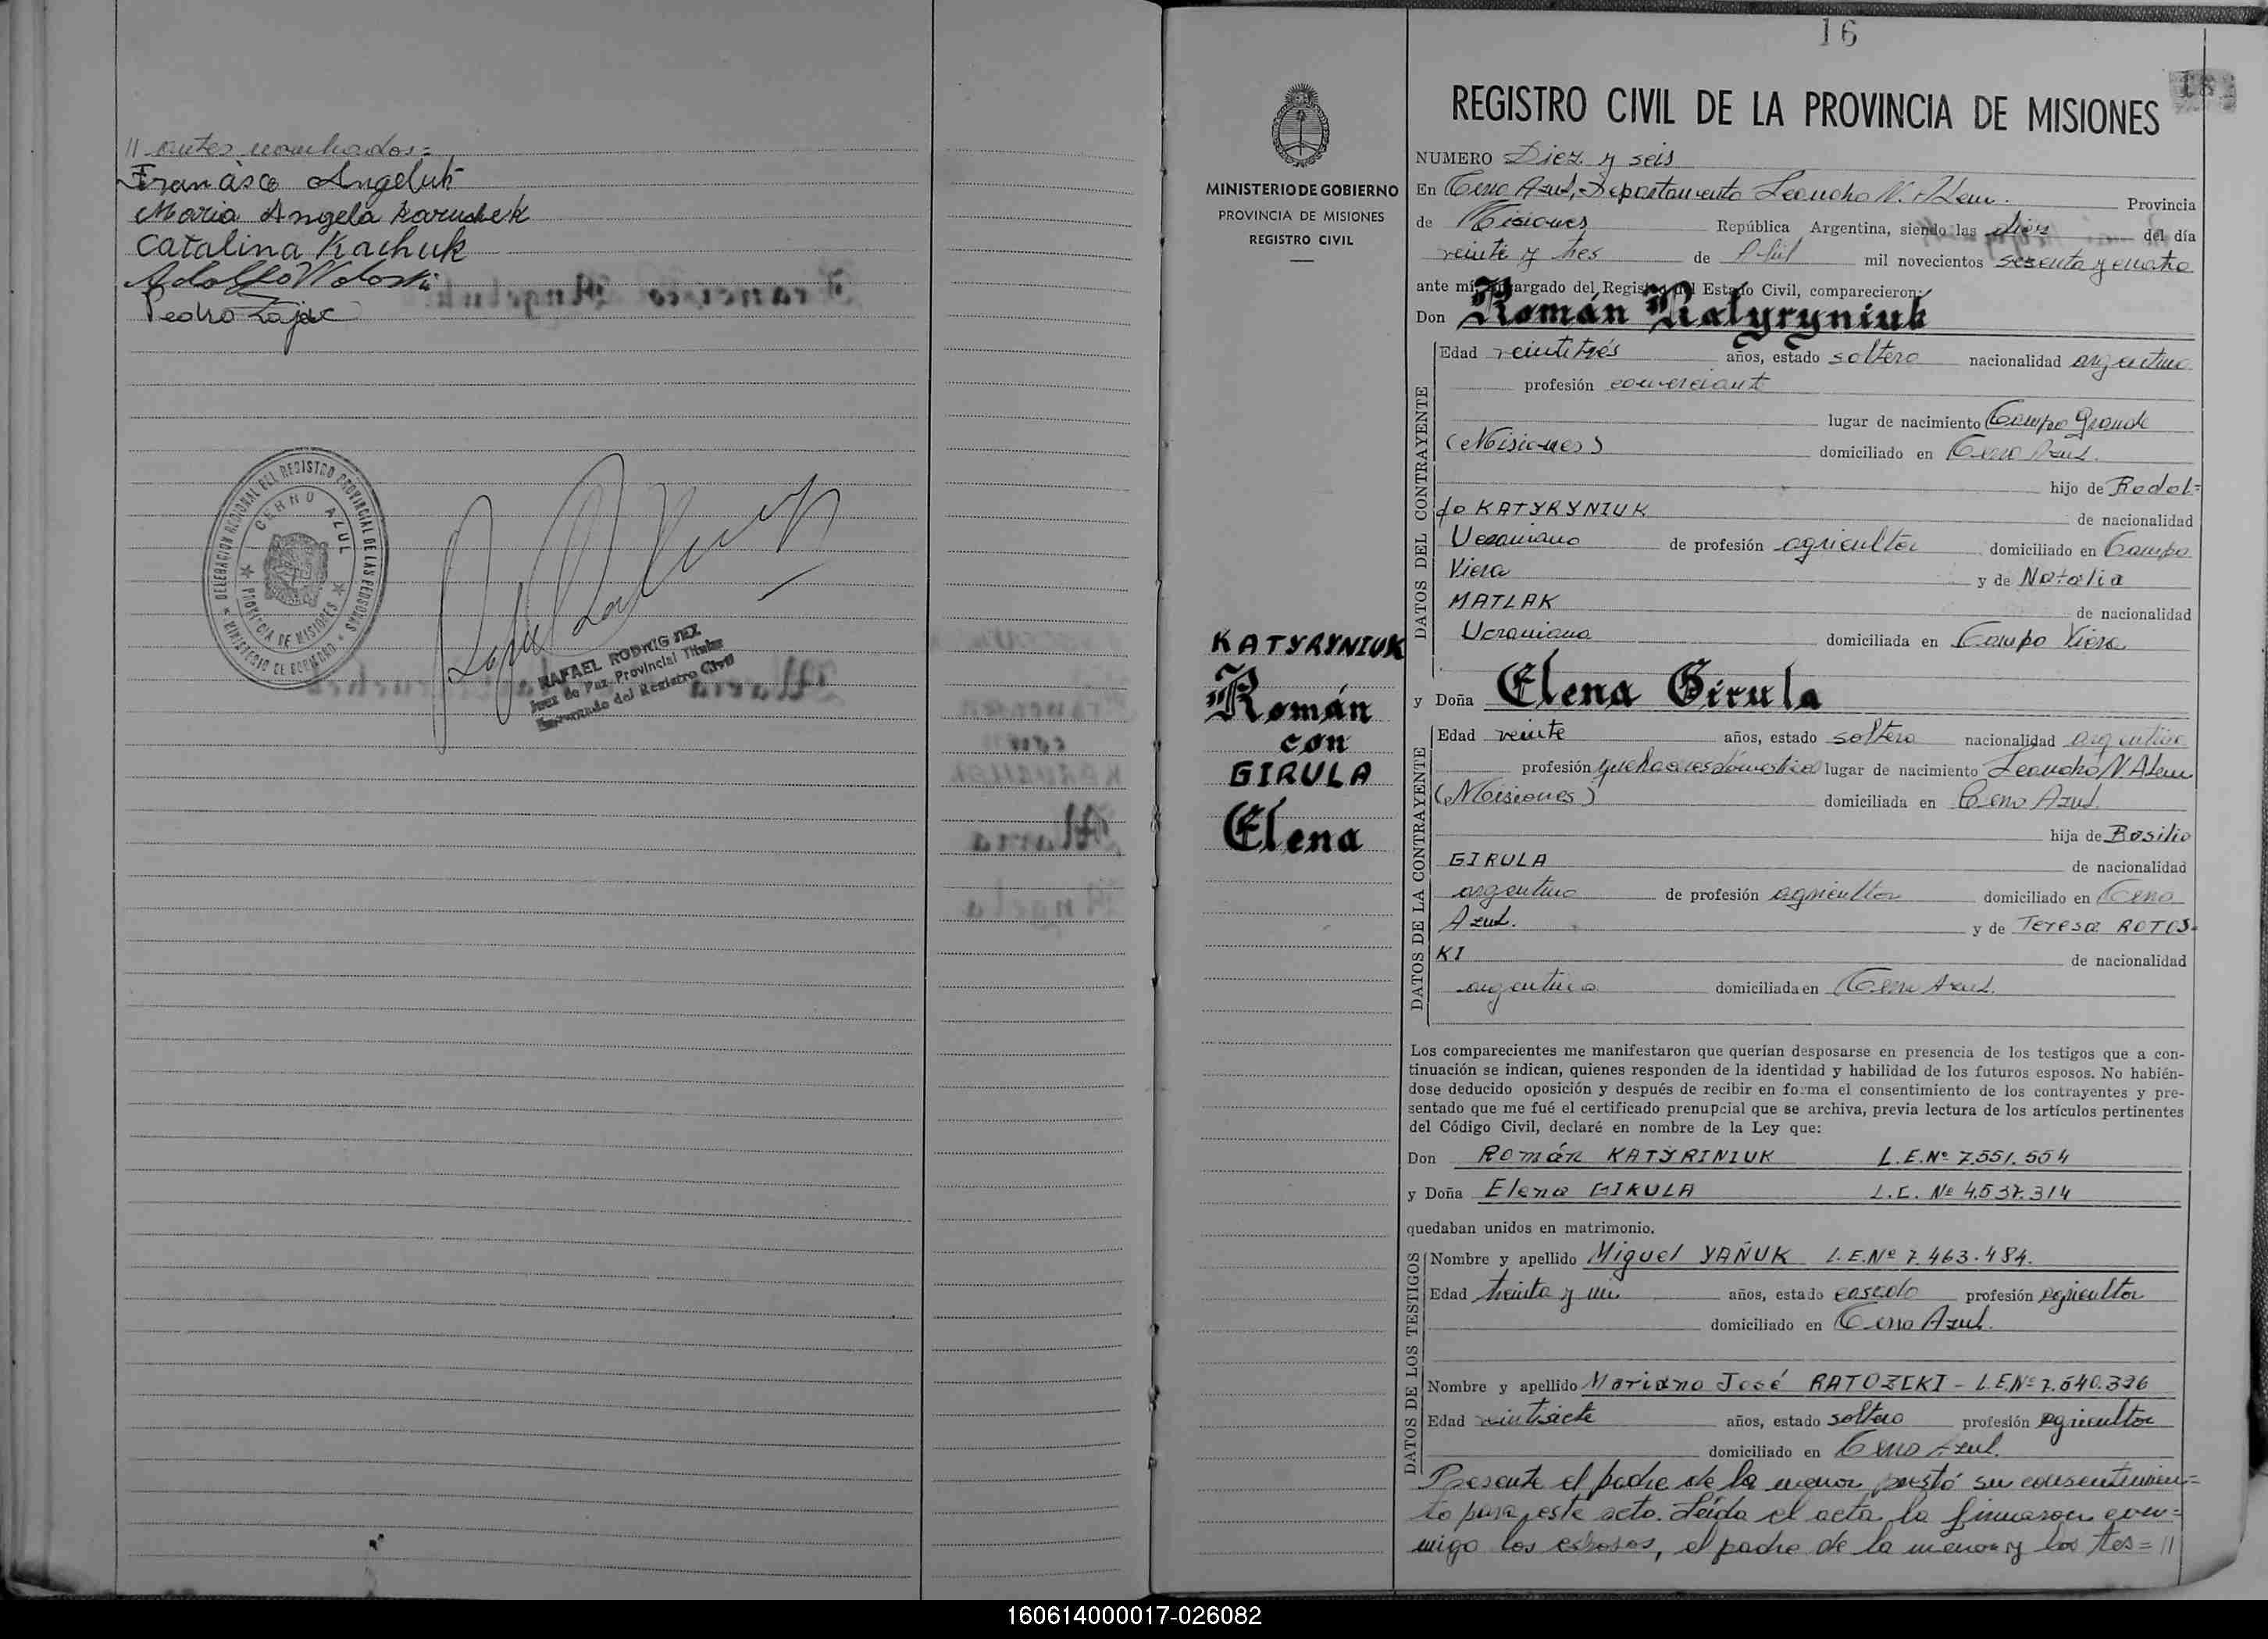 // antes nombrados=
Francisco Angeluk
Maria Angela Karuchek
Catalina Kachuk
Adolfo Woloski
Pedro Zajac
DELEGACION REGIONAL DEL REGISTRO PROVINCIAL DE LAS PERSONAS
MINISTERIO DE GOBIERNO
CERRO AZUL
PROVINCIA DE MISIONES
RAFAEL RODRIGUEZ
Juez de Paz Provincial Titular
Encargado del Registro Civil
16
18
REGISTRO CIVIL DE LA PROVINCIA DE MISIONES
MINISTERIO DE GOBIERNO
PROVINCIA DE MISIONES
REGISTRO CIVIL
KATYRYNIUK
Román
con
GIRULA
Elena
NUMERO Diez y seis
En Cerro Azul, Departamento Leandro N. Alem. Provincia
de Misiones República Argentina, siendo las diez del día
veinte y tres de Abril mil novecientos sesenta y cuatro
ante mí, Encargado del Registro del Estado Civil, comparecieron:
Don Román Katyryniuk
DATOS DEL CONTRAYENTE
Edad veintitrés años, estado soltero nacionalidad argentino
profesión comerciante
lugar de nacimiento Campo Grande
(Misiones) domiciliado en Cerro Azul.
hijo de Rodol=
fo KATYRYNIUK de nacionalidad
Ucraniano de profesión agricultor domiciliado en Campo
Viera y de Natalia
MATLAK de nacionalidad
Ucraniana domiciliada en Campo Viera
y Doña Elena Girula
DATOS DE LA CONTRAYENTE
Edad veinte años, estado soltera nacionalidad argentina
profesión quehaceres domésticos lugar de nacimiento Leandro N. Alem
(Misiones) domiciliada en Cerro Azul.
hija de Basilio
GIRULA de nacionalidad
argentino de profesión agricultor domiciliado en Cerro
Azul. y de Teresa ROTOS-
KI de nacionalidad
argentina domiciliada en Cerro Azul.
Los comparecientes me manifestaron que querían desposarse en presencia de los testigos que a con-
tinuación se indican, quienes responden de la identidad y habilidad de los futuros esposos. No habién-
dose deducido oposición y después de recibir en forma el consentimiento de los contrayentes y pre-
sentado que me fué el certificado prenupcial que se archiva, previa lectura de los artículos pertinentes
del Código Civil, declaré en nombre de la Ley que:
Don Román KATYRINIUK L.E.Nº 7.551.554
y Doña Elena GIRULA L.C. Nº 4.537.314
quedaban unidos en matrimonio.
DATOS DE LOS TESTIGOS
Nombre y apellido Miguel YAÑUK L.E.Nº 7.463.484.
Edad treinta y un años, estado casado profesión agricultor
domiciliado en Cerro Azul.
Nombre y apellido Mariano José RATOZCKI - L.E.Nº 7.540.396
Edad veintisiete años, estado soltero profesión agricultor
domiciliado en Cerro Azul.
Presente el padre de la menor prestó su consentimien=
to para este acto. Leída el acta la firmaron con=
migo los esposos, el padre de la menor y los tes= //
160614000017-026082